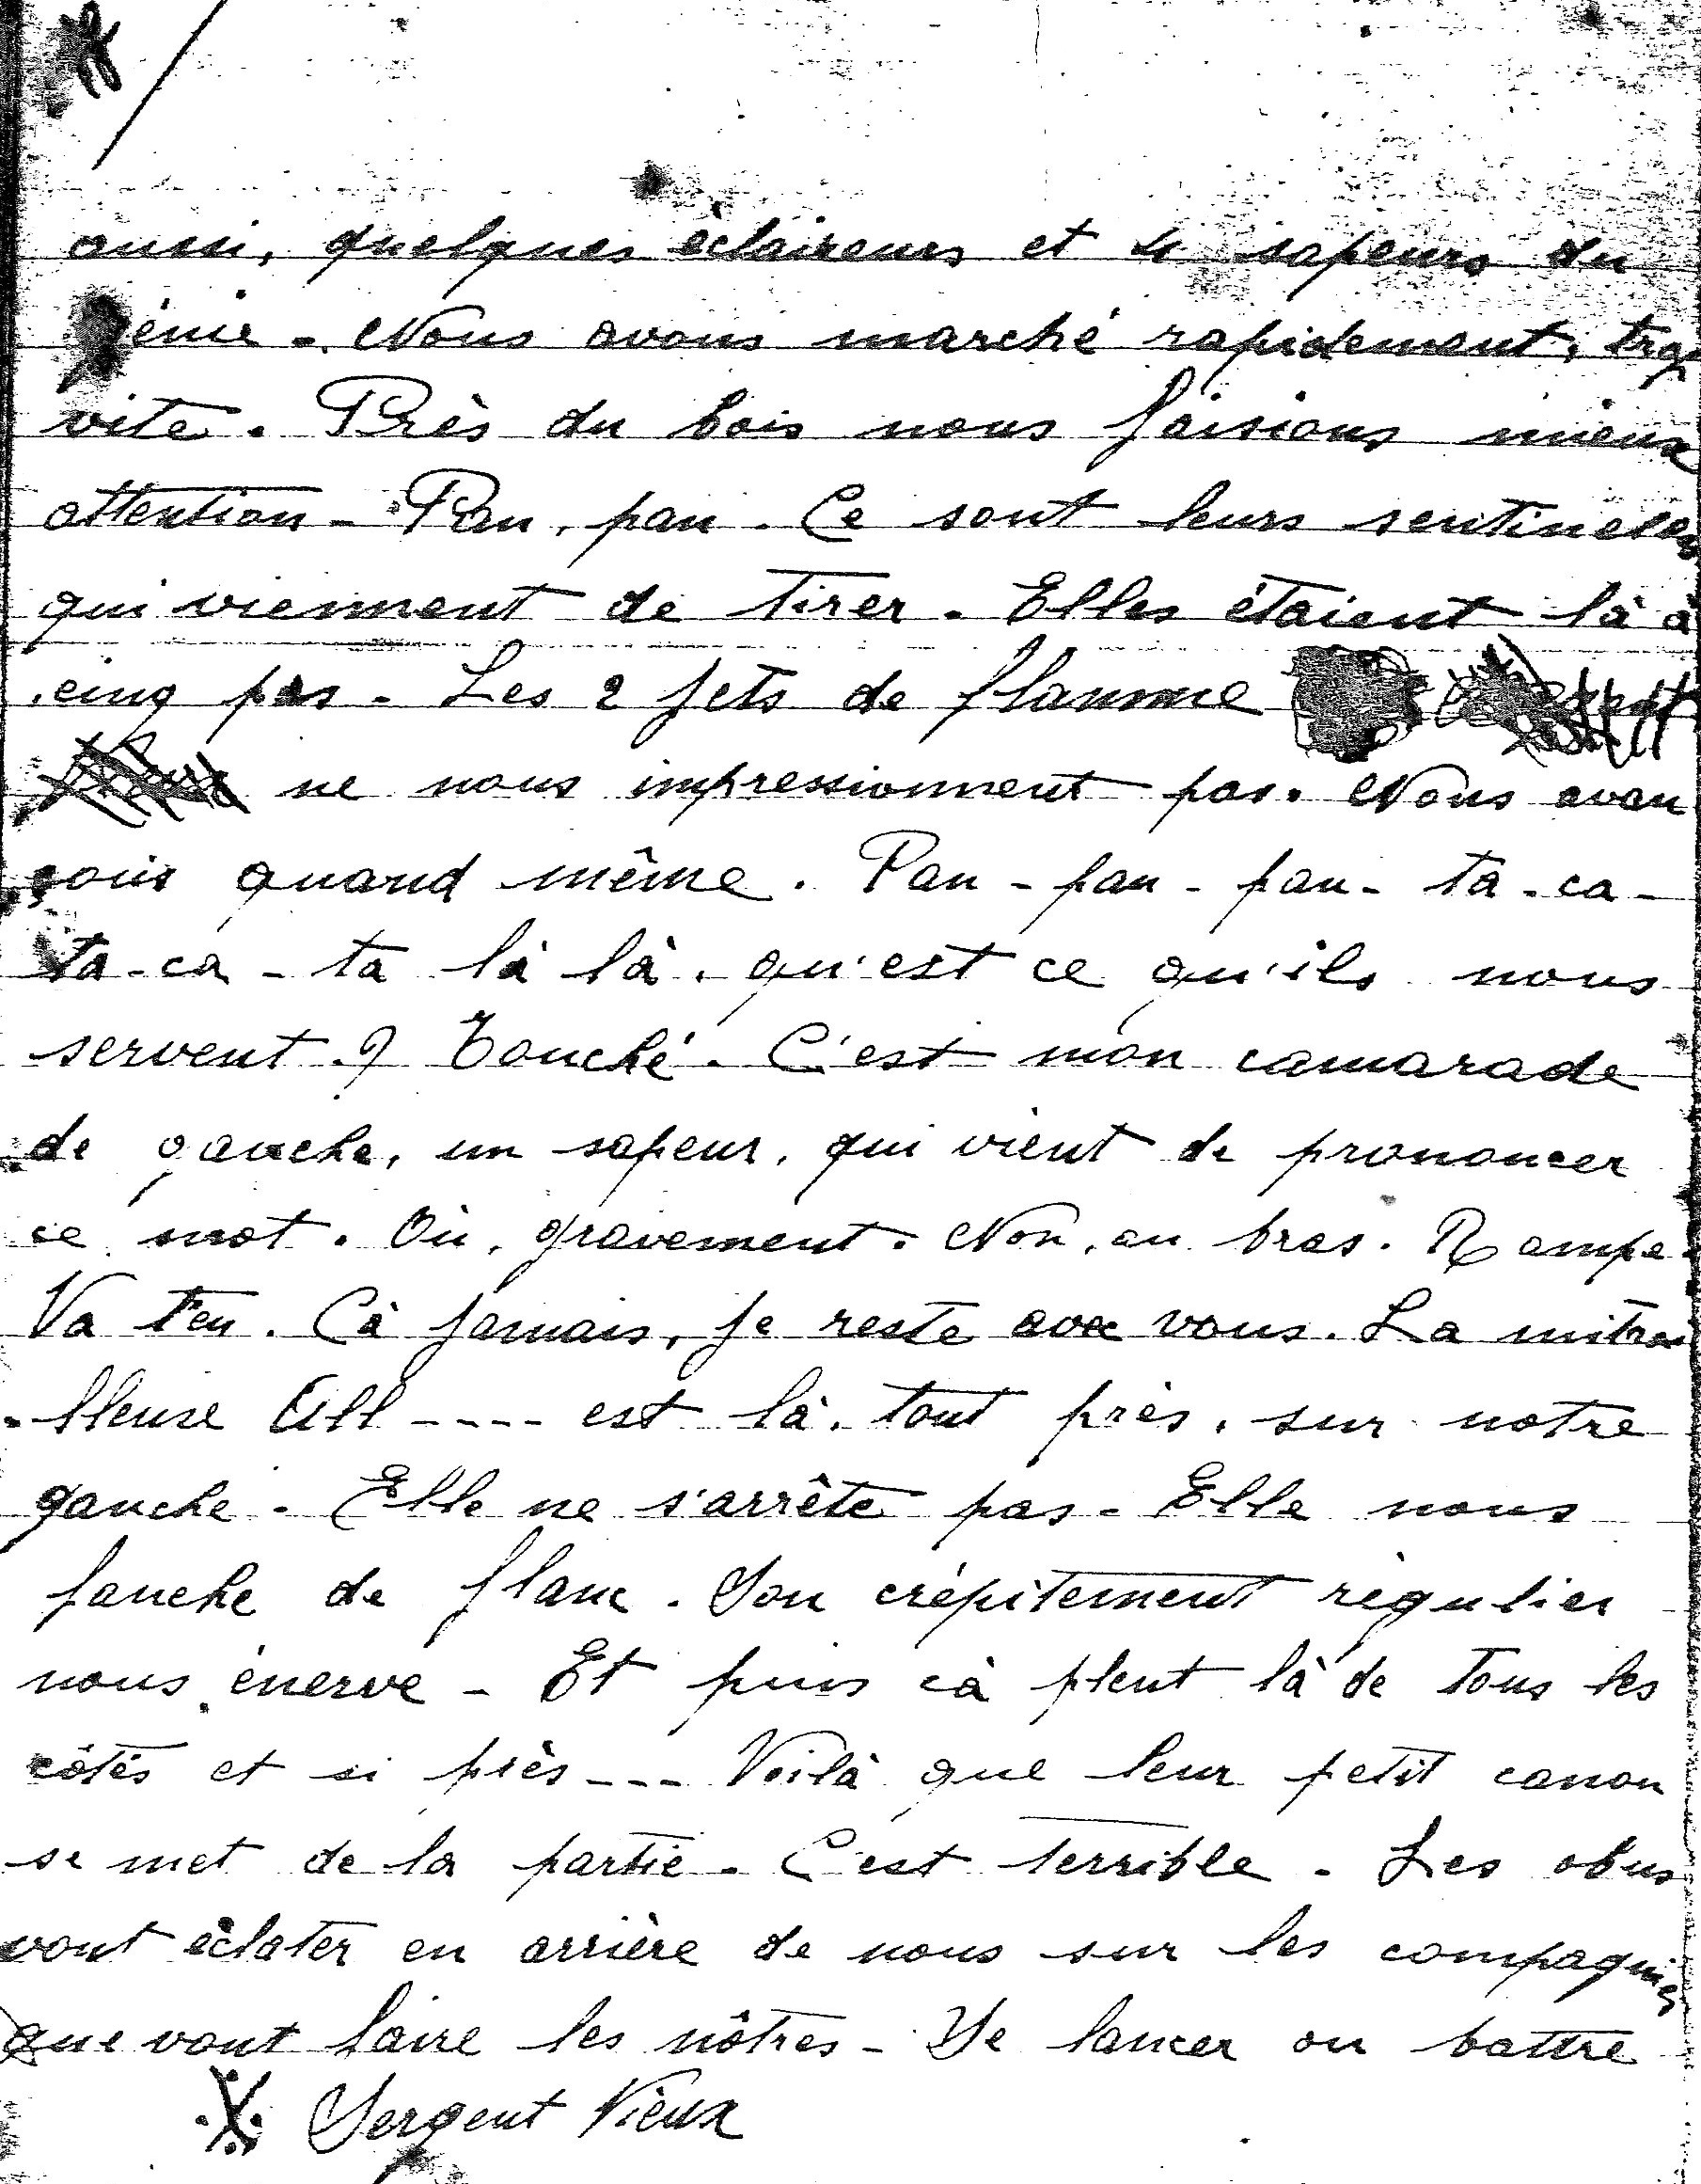 aussi, quelques éclaireurs et 4 sapeurs du
génie. Nous avons marché rapidement, trop
vite. Près du bois nous faisions mieux
attention - Pan, pan. Ce sont leurs sentinelles
qui viennent de tirer. Elles étaient là à
cinq pas. Les 2 jets de flamme
ne nous impressionnent pas. Nous avan
çons quand même. Pan - pan - pan - ta - ca -
ta - ca - ta là là, qu'est ce qu'ils nous
servent ? Touché. C'est mon camarade
de gauche, un sapeur, qui vient de prononcer
ce mot. Où, gravement. Non, au bras. Rampe.
Va t'en. Cà jamais, je reste avec vous. La mitrai
- lleuse All ---- est là, tout près, sur notre
gauche. Elle ne s'arrête pas. Elle nous
fauche de flanc. Son crépitement régulier
nous énerve - Et puis cà pleut là de tous les
côtés et si près --- Voilà que leur petit canon
se met de la partie. C'est terrible. Les obus
vont éclater en arrière de nous sur les compagnies
que vont faire les nôtres - Se lancer ou battre
Sergent Vieux